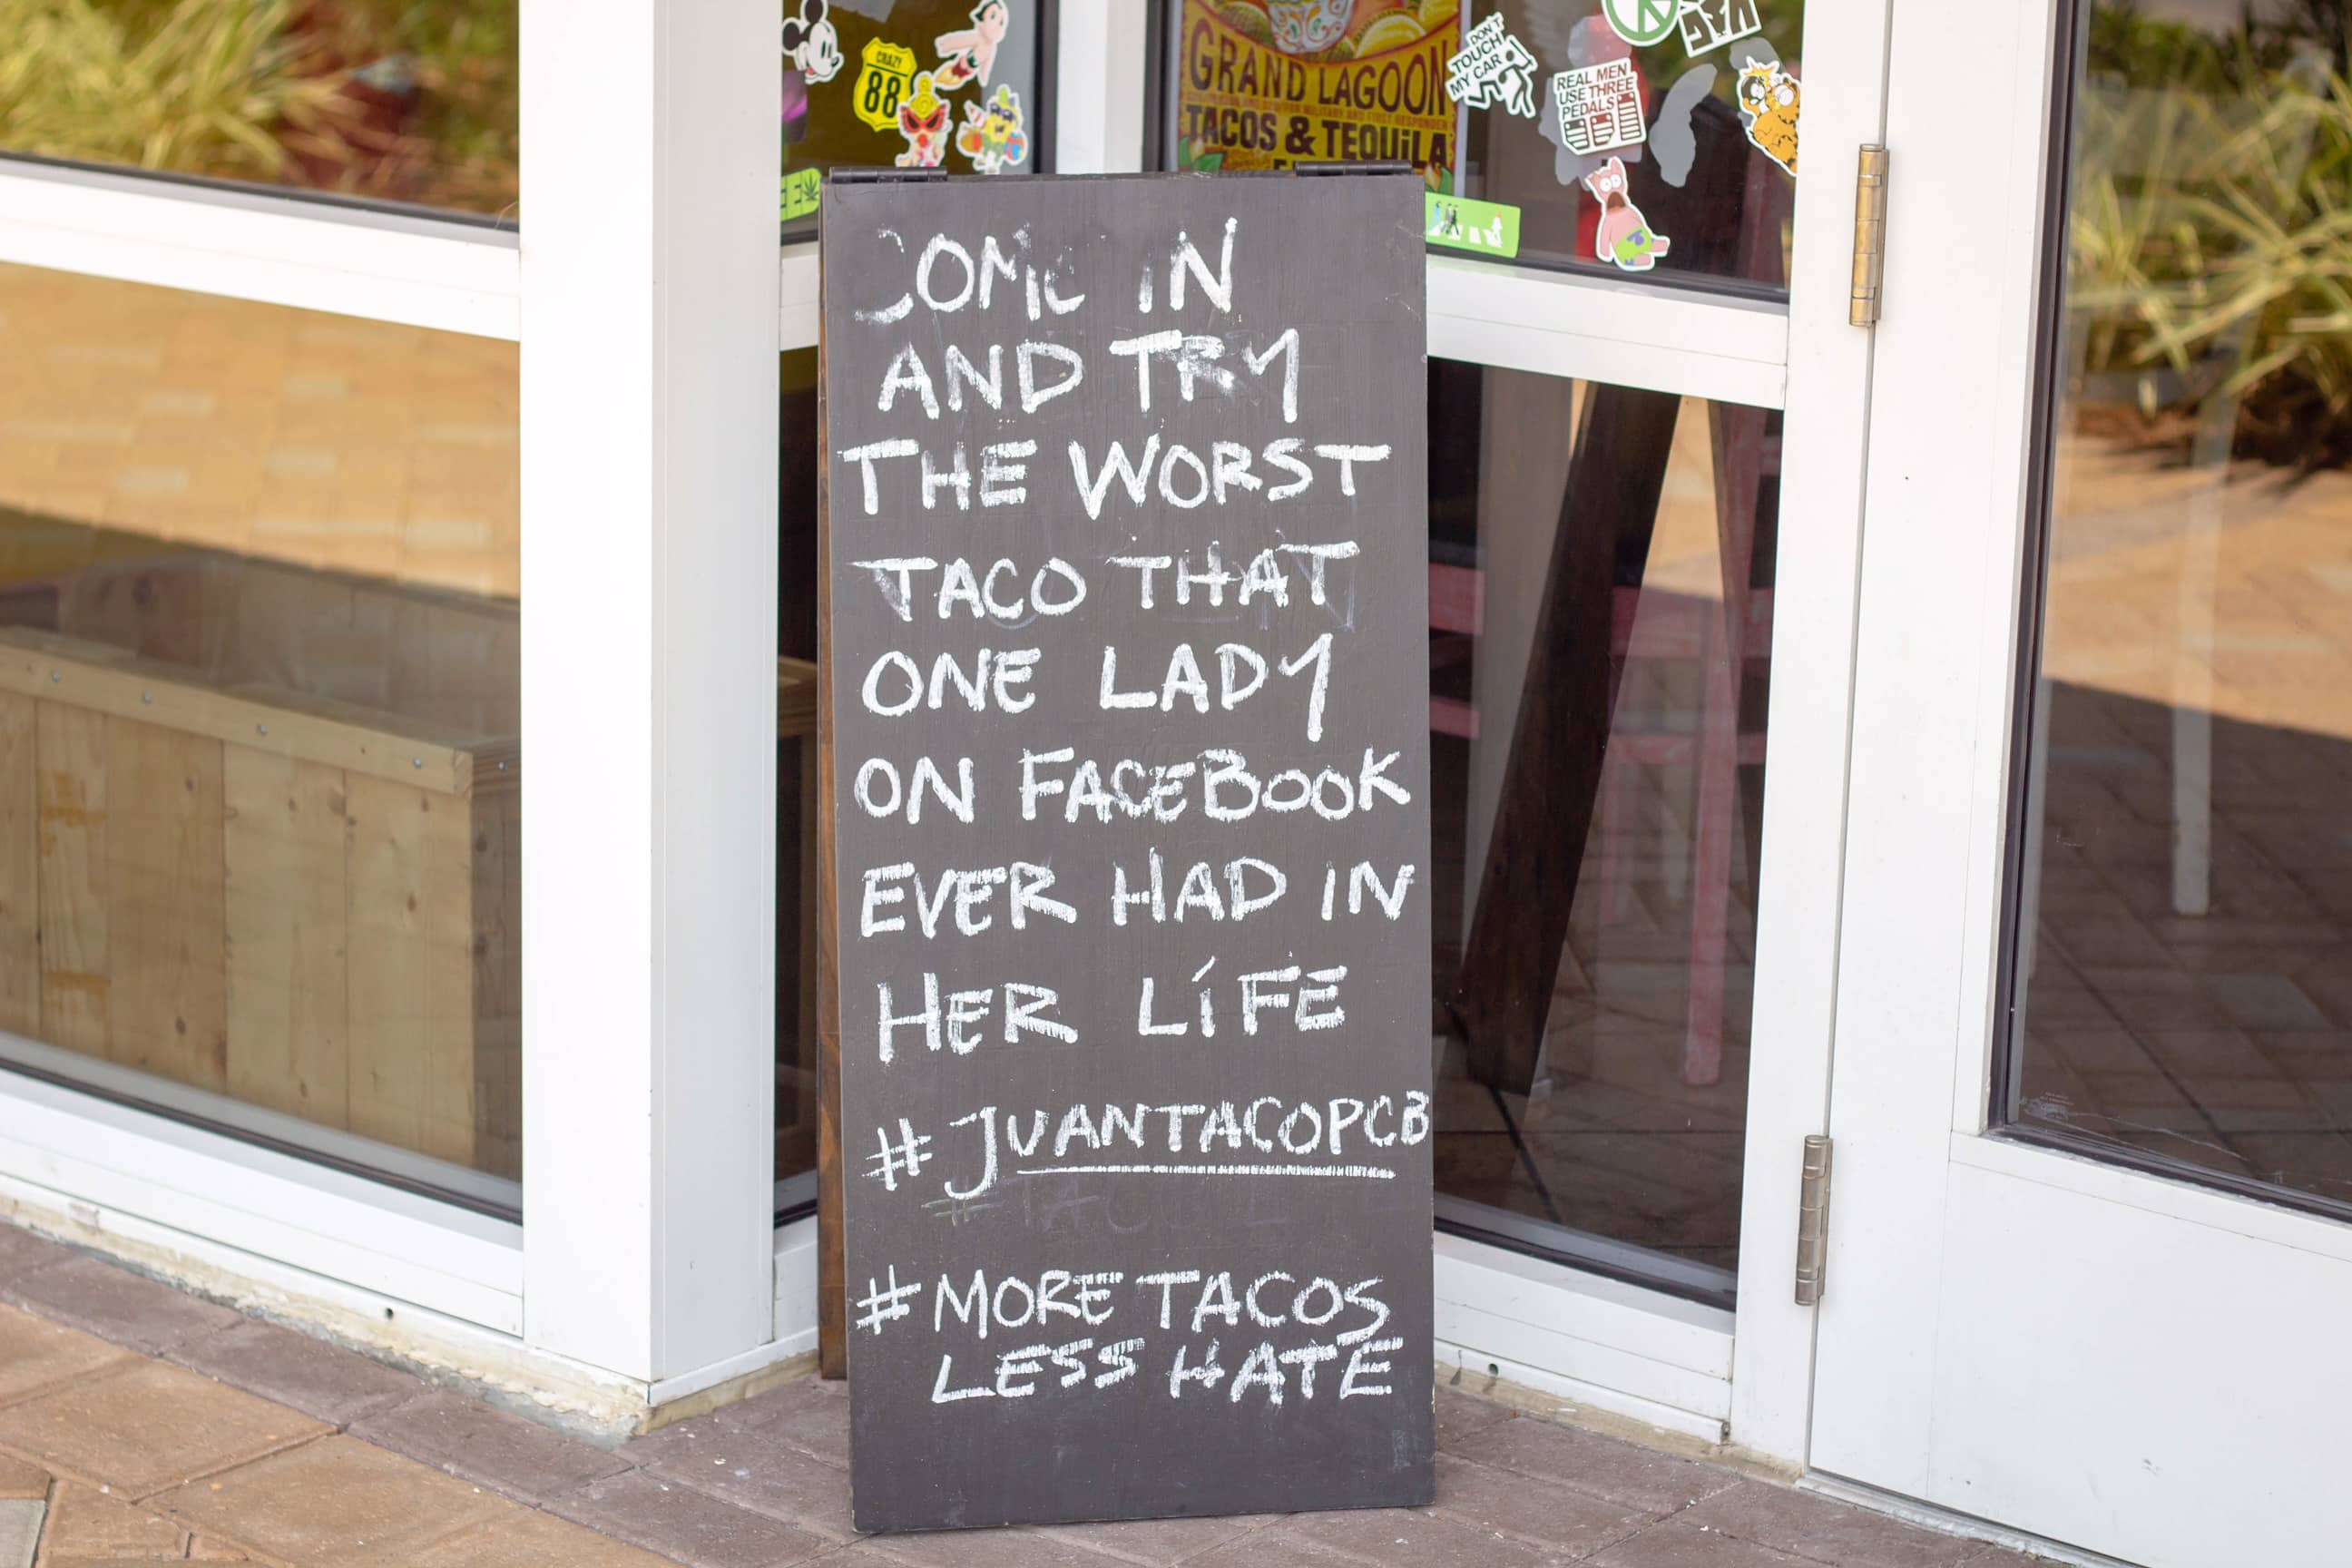 CRAZY
88
GRAND LAGOON
TACOS & TEQUiLA
DON'T
TOUCH!
MY CAR
REAL MEN
USE THREE
PEDALS
COME IN
AND TRY
THE WORST
TACO THAT
ONE LADY
ON FACEBOOK
EVER HAD IN
HER LIFE
#JUANTACOPCB
#MORE TACOS
LESS HATE